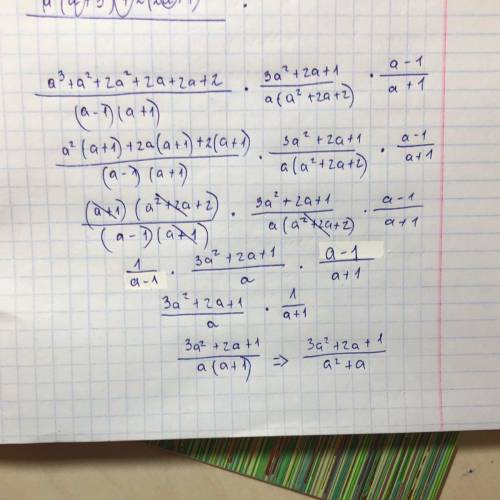 a³+a²+2a²+2a+2a+2 / (a-1)(a+1) · 3a²+2a+1 / a(a²+2a+2) · a-1 / a+1
a²(a+1)+2a(a+1)+2(a+1) / (a-1)(a+1) · 3a²+2a+1 / a(a²+2a+2) · a-1 / a+1
(a+1)(a²+2a+2) / (a-1)(a+1) · 3a²+2a+1 / a(a²+2a+2) · a-1 / a+1
1 / a-1 · 3a²+2a+1 / a · a-1 / a+1
3a²+2a+1 / a · 1 / a+1
3a²+2a+1 / a(a+1) ⇒ 3a²+2a+1 / a²+a